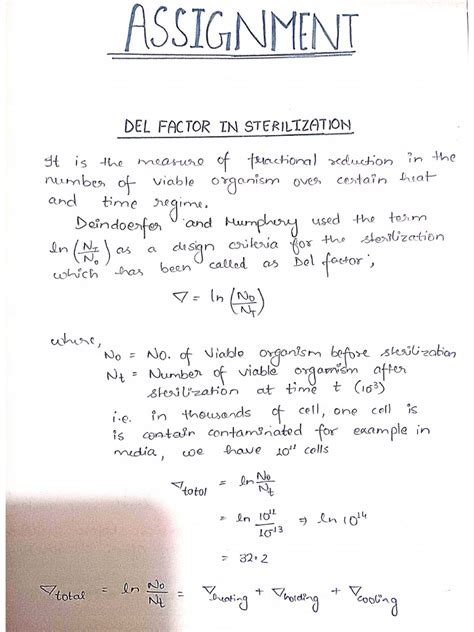 ASSIGNMENT
DEL FACTOR IN STERILIZATION
It is the measure of fractional reduction in the
number of viable organism over certain heat
and time regime.
Deindoerfer and Humphery used the term
ln (N_T/N_o) as a design criteria for the sterilization
which has been called as Del factor;
∇ = ln (N_o/N_T)
where,
N_o = NO. of Viable organism before sterilization
N_t = Number of viable organism after
sterilization at time t (10^3)
i.e. in thousands of cell, one cell is
is contain contaminated for example in
media, we have 10^11 cells
∇_total = ln N_o/N_t
= ln 10^11/10^-13 ⇒ ln 10^14
= 32.2
∇_total = ln N_o/N_t = ∇_heating + ∇_holding + ∇_cooling